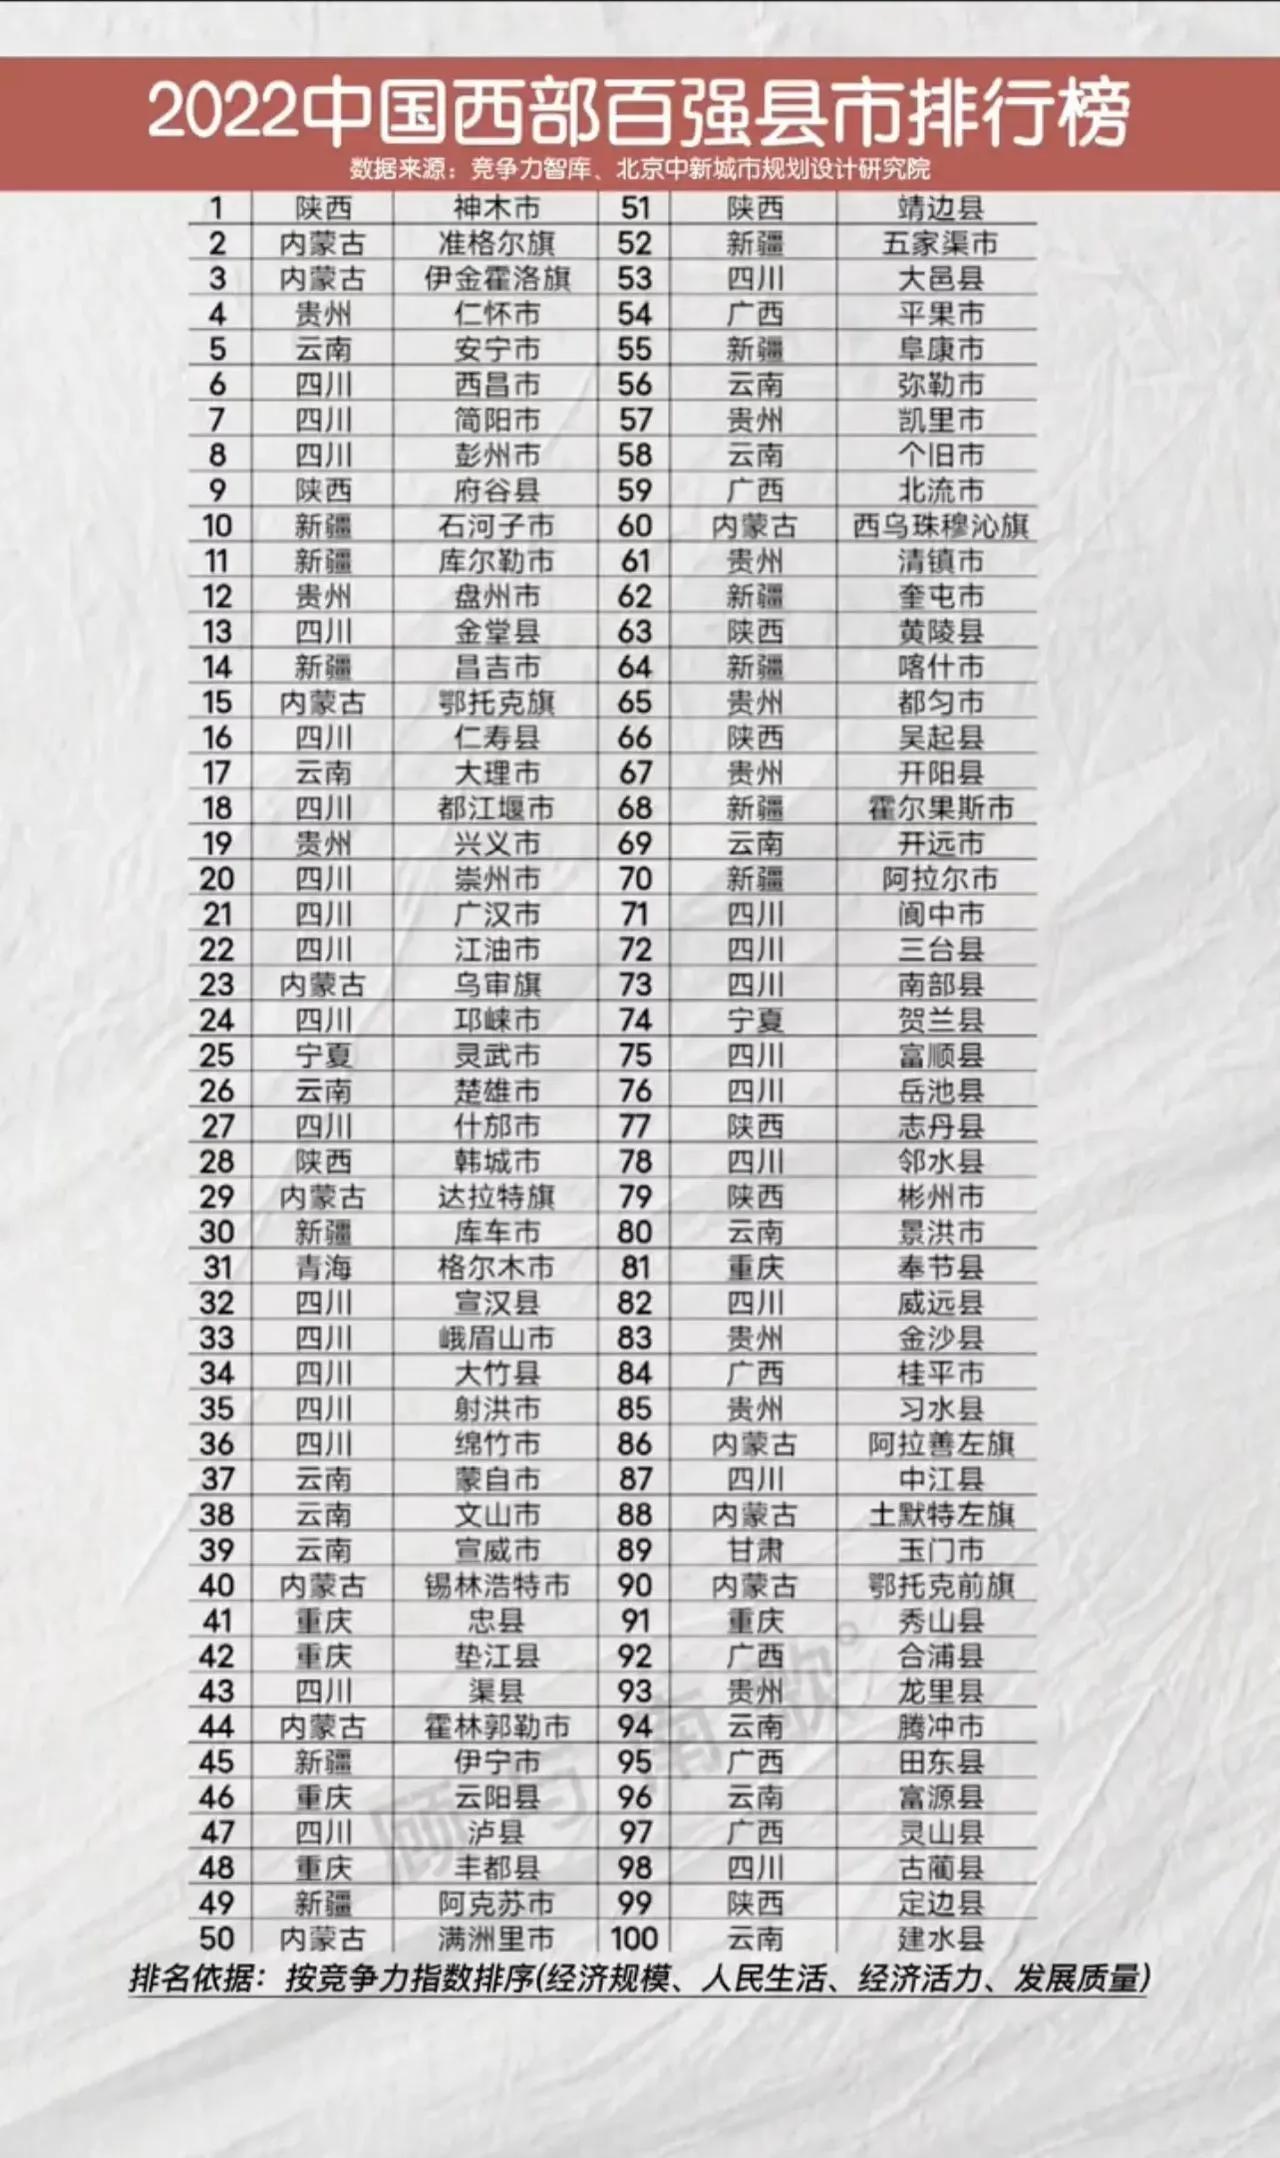 2022中国西部百强县市排行榜
数据来源：竞争力智库、北京中新城市规划设计研究院
1 陕西 神木市 51 陕西 靖边县
2 内蒙古 准格尔旗 52 新疆 五家渠市
3 内蒙古 伊金霍洛旗 53 四川 大邑县
4 贵州 仁怀市 54 广西 平果市
5 云南 安宁市 55 新疆 阜康市
6 四川 西昌市 56 云南 弥勒市
7 四川 简阳市 57 贵州 凯里市
8 四川 彭州市 58 云南 个旧市
9 陕西 府谷县 59 广西 北流市
10 新疆 石河子市 60 内蒙古 西乌珠穆沁旗
11 新疆 库尔勒市 61 贵州 清镇市
12 贵州 盘州市 62 新疆 奎屯市
13 四川 金堂县 63 陕西 黄陵县
14 新疆 昌吉市 64 新疆 喀什市
15 内蒙古 鄂托克旗 65 贵州 都匀市
16 四川 仁寿县 66 陕西 吴起县
17 云南 大理市 67 贵州 开阳县
18 四川 都江堰市 68 新疆 霍尔果斯市
19 贵州 兴义市 69 云南 开远市
20 四川 崇州市 70 新疆 阿拉尔市
21 四川 广汉市 71 四川 阆中市
22 四川 江油市 72 四川 三台县
23 内蒙古 乌审旗 73 四川 南部县
24 四川 邛崃市 74 宁夏 贺兰县
25 宁夏 灵武市 75 四川 富顺县
26 云南 楚雄市 76 四川 岳池县
27 四川 什邡市 77 陕西 志丹县
28 陕西 韩城市 78 四川 邻水县
29 内蒙古 达拉特旗 79 陕西 彬州市
30 新疆 库车市 80 云南 景洪市
31 青海 格尔木市 81 重庆 奉节县
32 四川 宣汉县 82 四川 威远县
33 四川 峨眉山市 83 贵州 金沙县
34 四川 大竹县 84 广西 桂平市
35 四川 射洪市 85 贵州 习水县
36 四川 绵竹市 86 内蒙古 阿拉善左旗
37 云南 蒙自市 87 四川 中江县
38 云南 文山市 88 内蒙古 土默特左旗
39 云南 宣威市 89 甘肃 玉门市
40 内蒙古 锡林浩特市 90 内蒙古 鄂托克前旗
41 重庆 忠县 91 重庆 秀山县
42 重庆 垫江县 92 广西 合浦县
43 四川 渠县 93 贵州 龙里县
44 内蒙古 霍林郭勒市 94 云南 腾冲市
45 新疆 伊宁市 95 广西 田东县
46 重庆 云阳县 96 云南 富源县
47 四川 泸县 97 广西 灵山县
48 重庆 丰都县 98 四川 古蔺县
49 新疆 阿克苏市 99 陕西 定边县
50 内蒙古 满洲里市 100 云南 建水县
排名依据：按竞争力指数排序(经济规模、人民生活、经济活力、发展质量)
顾与南歌°